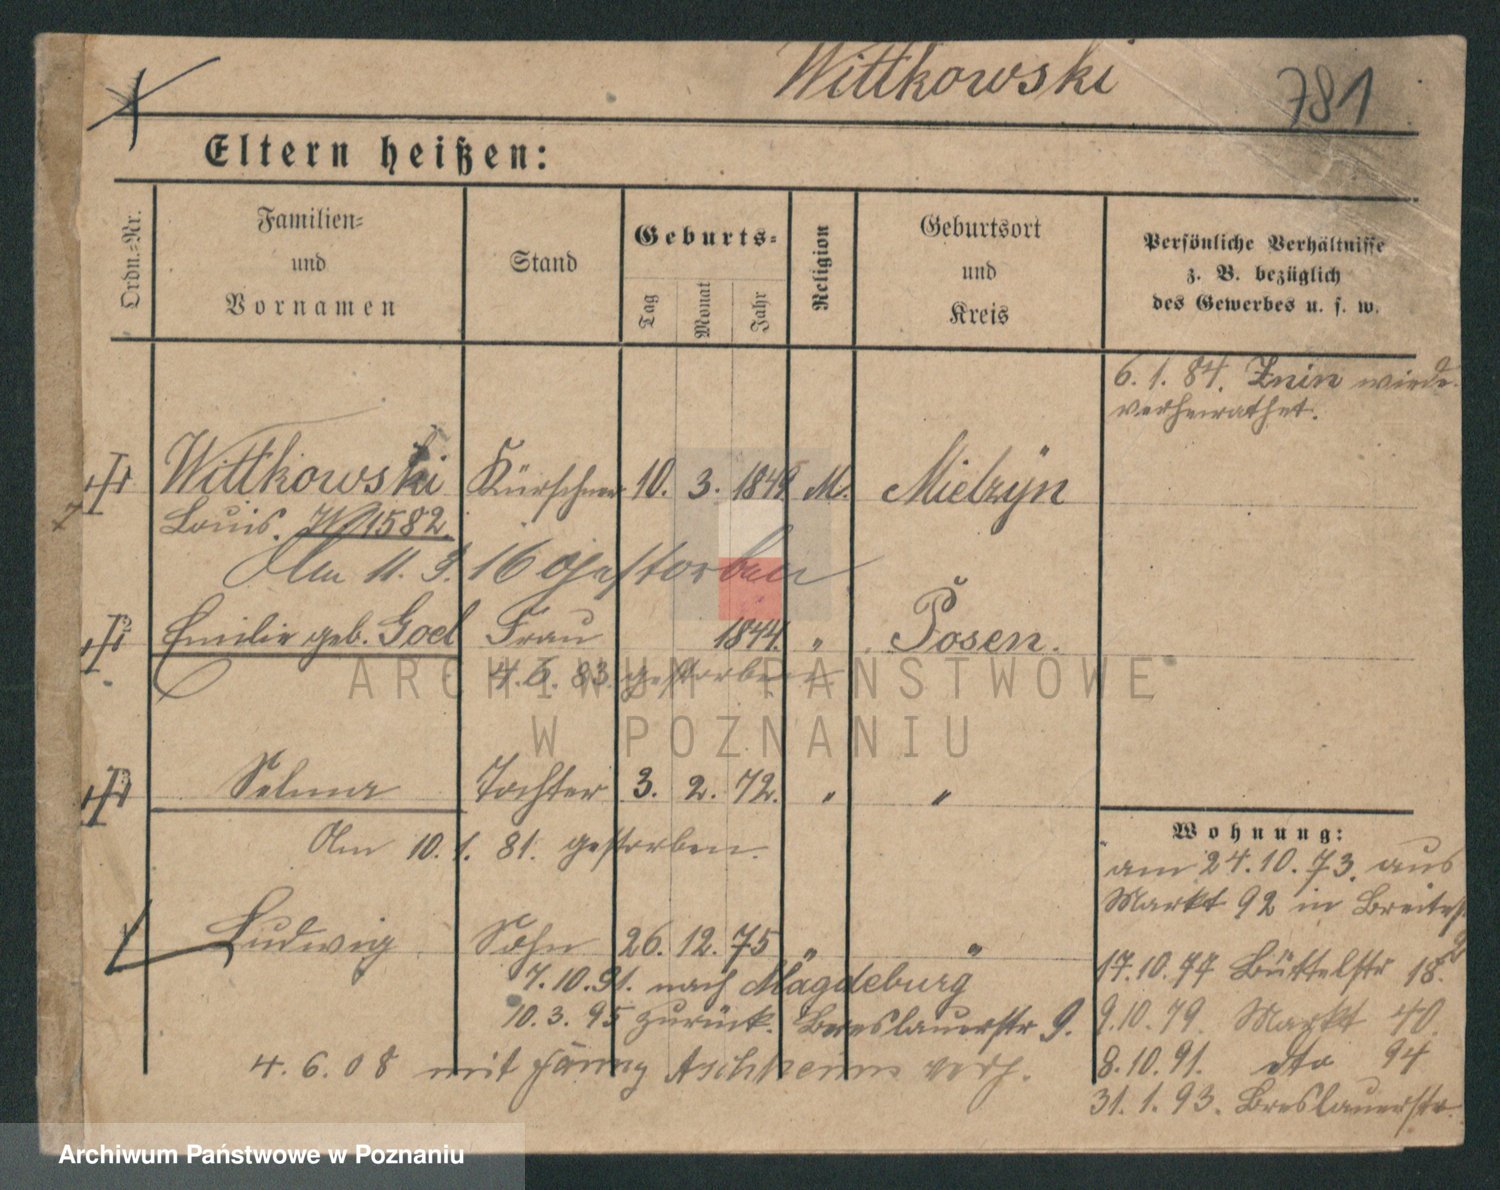 Wittkowski
781
Eltern heißen:
Ordn.=Nr.
Familien=
und
Vornamen
Stand
Geburts=
Tag
Monat
Jahr
Religion
Geburtsort
und
Kreis
Persönliche Verhältnisse
z. B. bezüglich
des Gewerbes u. s. w.
6. 1. 84. Znin wieder
verheirathet.
Wittkowski Kürschner 10. 3. 1849 M. Mielzyn
Louis. W 1582.
Am 11. 3. 16 gestorben
Emilie geb. Goel Frau 1844. „ Posen.
4. 6. 83. gestorben
Selma Tochter 3. 2. 72. „ „
Am 10. 1. 81. gestorben.
Ludwig Sohn 26. 12. 75 „ „
7. 10. 91. nach Magdeburg
10. 3. 95 zurück. Breslauerstr 9.
4. 6. 08 mit Fanny Aschheim verh.
Wohnung:
am 24. 10. 73. aus
Markt 92 in Breitestr
17. 10. 77 Büttelstr 18.
9. 10. 79. Markt 40.
8. 10. 91. dto 94
31. 1. 93. Breslauerstr.
ARCHIWUM PAŃSTWOWE
W POZNANIU
Archiwum Państwowe w Poznaniu